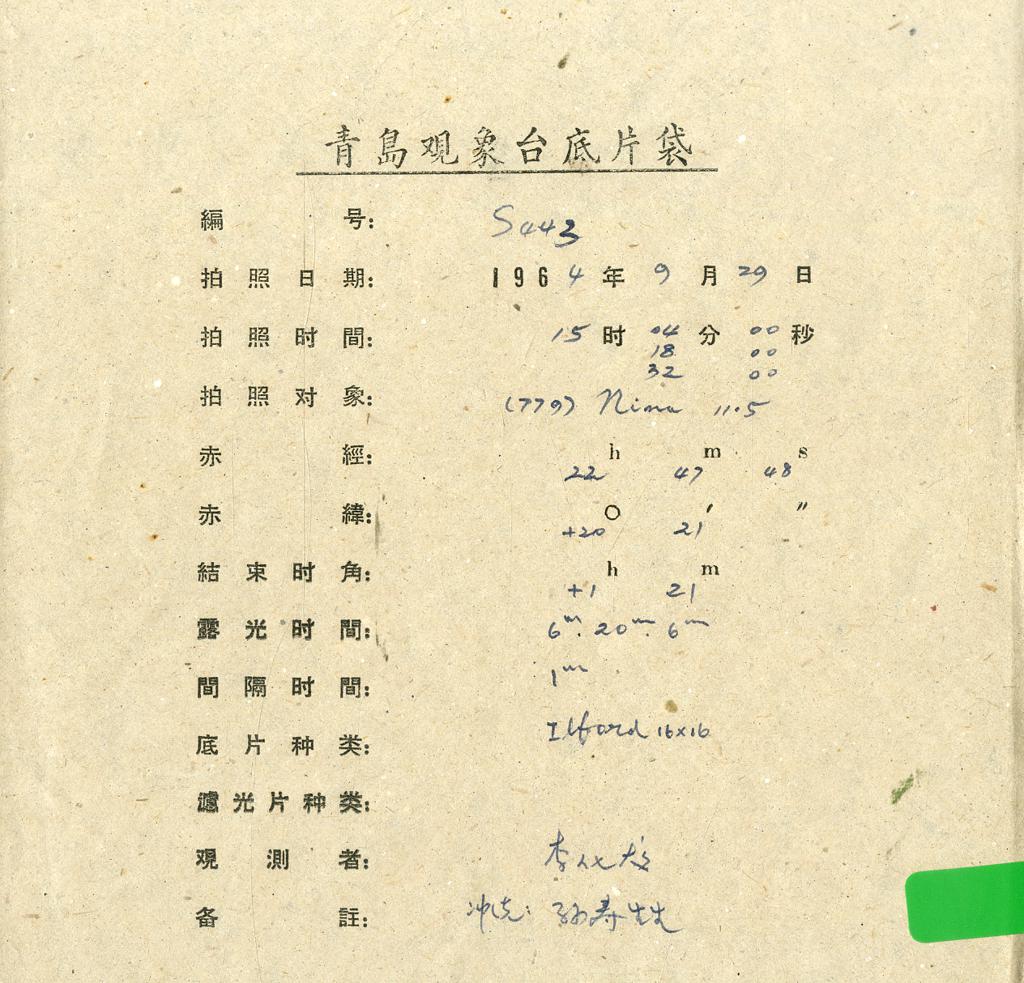 青島观象台底片袋
編号: S443
拍照日期: 1964年9月29日
拍照时間: 15时04分00秒
18 00
32 00
拍照对象: (779) Nina 11.5
赤經: 22h 47m 48s
赤緯: +20° 21′ ″
結束时角: +1h 21m
露光时間: 6m. 20m. 6m
間隔时間: 1m
底片种类: Ilford 16x16
濾光片种类:
观測者: 李
备註: 冲洗: 孙寿